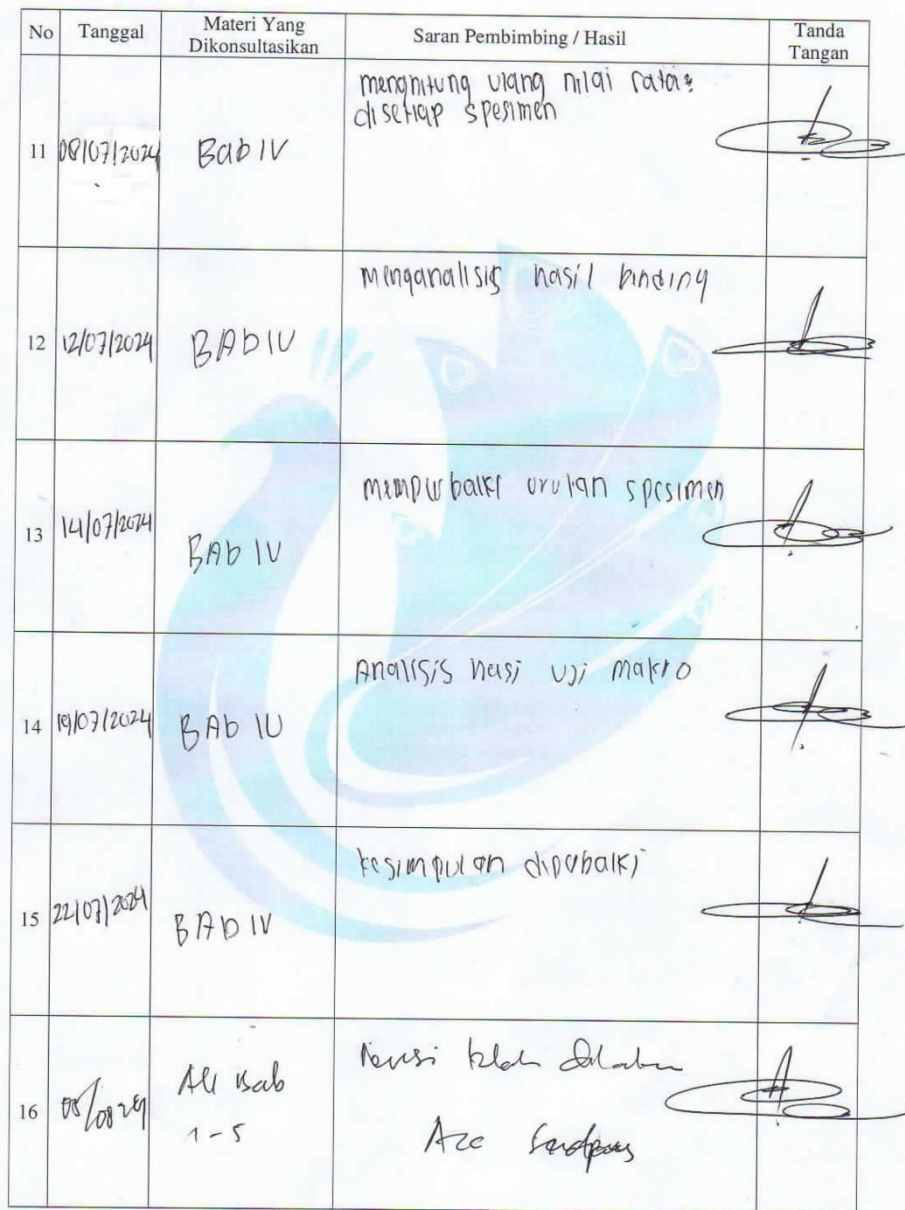 No Tanggal Materi Yang Dikonsultasikan Saran Pembimbing / Hasil Tanda Tangan
11 08/07/2024 Bab IV menghitung ulang nilai rata2
disetiap spesimen
12 12/07/2024 BAb IV menganalisis hasil binding
13 14/07/2024 BAb IV memperbaiki urutan spesimen
14 19/07/2024 BAb IV Analisis hasi uji makro
15 22/07/2024 BAb IV kesimpulan diperbaiki
16 All Bab Revisi telah
1-5 Acc